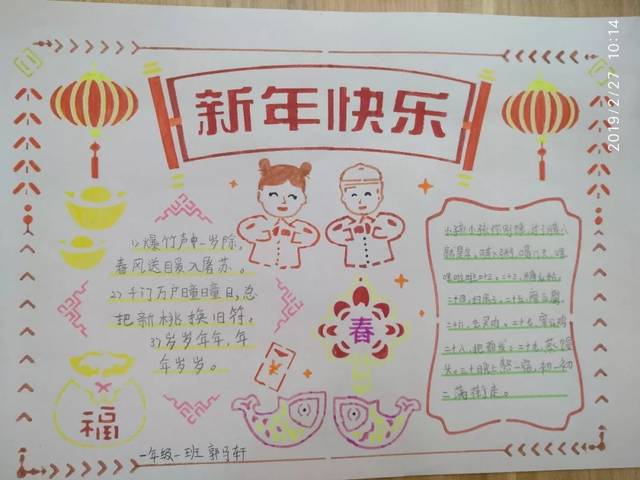 2019/2/27 10:14
新年快乐
1)爆竹声中一岁除,
春风送暖入屠苏。
2)千门万户曈曈日,总
把新桃换旧符。
3)岁岁年年,年
年岁岁。
春
福
小孩小孩你别馋,过了腊八
就是年,
二十三,糖瓜粘,
二十四,扫房子,二十五,磨豆腐,
二十八,把面发,二十九,蒸馒
头,三十晚上熬一宿,初一初
二满街走。
一年级一班